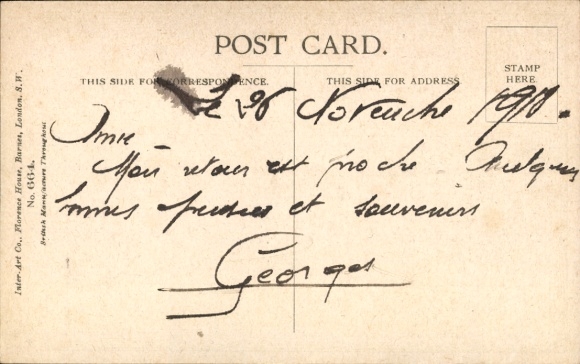 POST CARD.
THIS SIDE FOR CORRESPONDENCE.
THIS SIDE FOR ADDRESS
STAMP
HERE.
Le 26 Novembre
Amie
Mon retour est proche Quelques
et souvenirs
Georges
Inter-Art Co., Florence House, Barnes, London, S.W.
No. 664.
British Manufacture Throughout